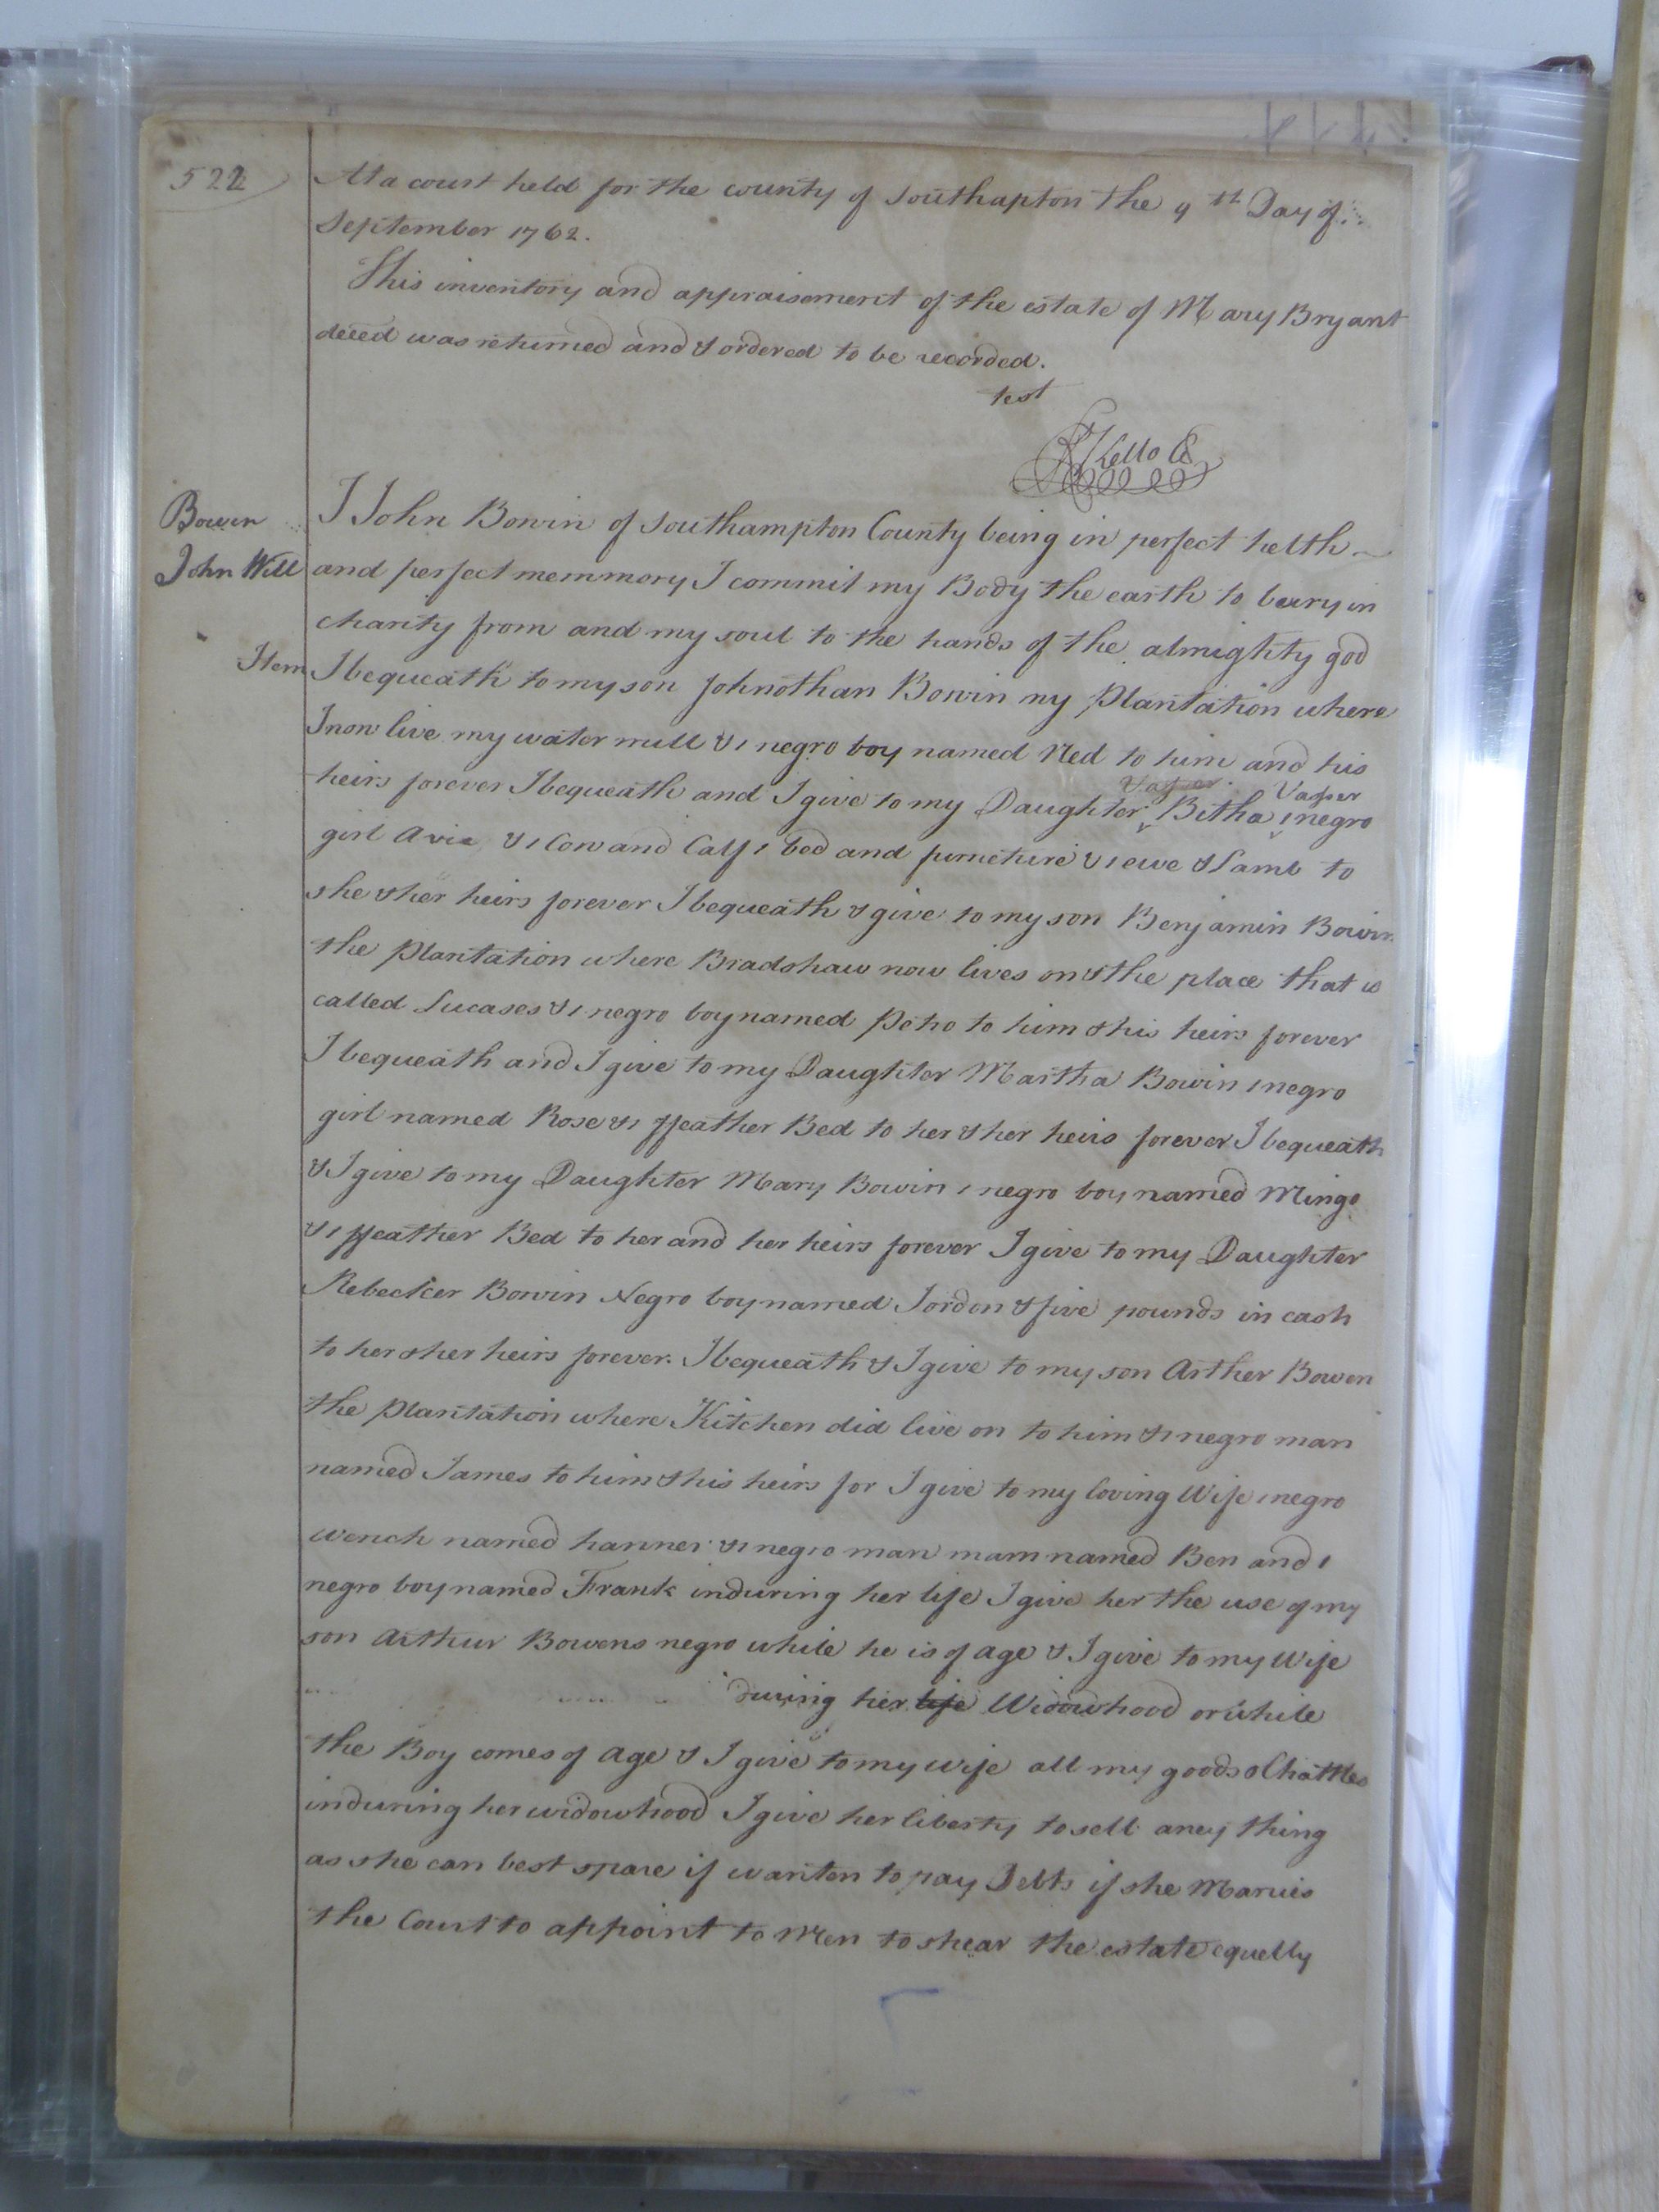 522
At a court held for the county of Southapton the 9th Day of
September 1762.
This inventory and appraisement of the estate of Mary Bryant
deced was returned and & ordered to be recorded.
test
R Kello Cl
Bowin
John Will
I John Bowin of Southampton County being in perfect helth
and perfect memmory I commit my Body the earth to beury in
charity from and my soul to the hands of the almighty god
Item
I bequeath to my son Johnothan Bowin my Plantation where
I now live my water mill & 1 negro boy named Ned to him and his
heirs forever I bequeath and I give to my Daughter Bitha Vasser 1 negro
girl Avie & 1 Cow and Calf 1 bed and furneture & 1 ewe & Lamb to
she & her heirs forever I bequeath & give to my son Benjamin Bowin
the Plantation where Bradshaw now lives on & the place that is
called Lucases & 1 negro boy named Petro to him & his heirs forever
I bequeath and I give to my Daughter Martha Bowin 1 negro
girl named Rose & 1 ffeather Bed to her & her heirs forever I bequeath
& I give to my Daughter Mary Bowin 1 negro boy named Mingo
& 1 ffeather Bed to her and her heirs forever I give to my Daughter
Rebecker Bowin Negro boy named Jordon & five pounds in cash
to her & her heirs forever. I bequeath & I give to my son Arther Bowen
the Plantation where Kitchen did live on to him & 1 negro man
named James to him & his heirs for I give to my loving Wife 1 negro
wench named hanner & 1 negro man mam named Ben and 1
negro boy named Frank induring her life I give her the use of my
son Arthur Bowens negro while he is of age & I give to my Wife
during her life Widowhood or while
the Boy comes of age & I give to my wife all my goods & Chattles
induring her widowhood I give her liberty to sell aney thing
as she can best spare if wanten to pay Debts if she Marries
the Court to appoint to Men to shear the estate equelly